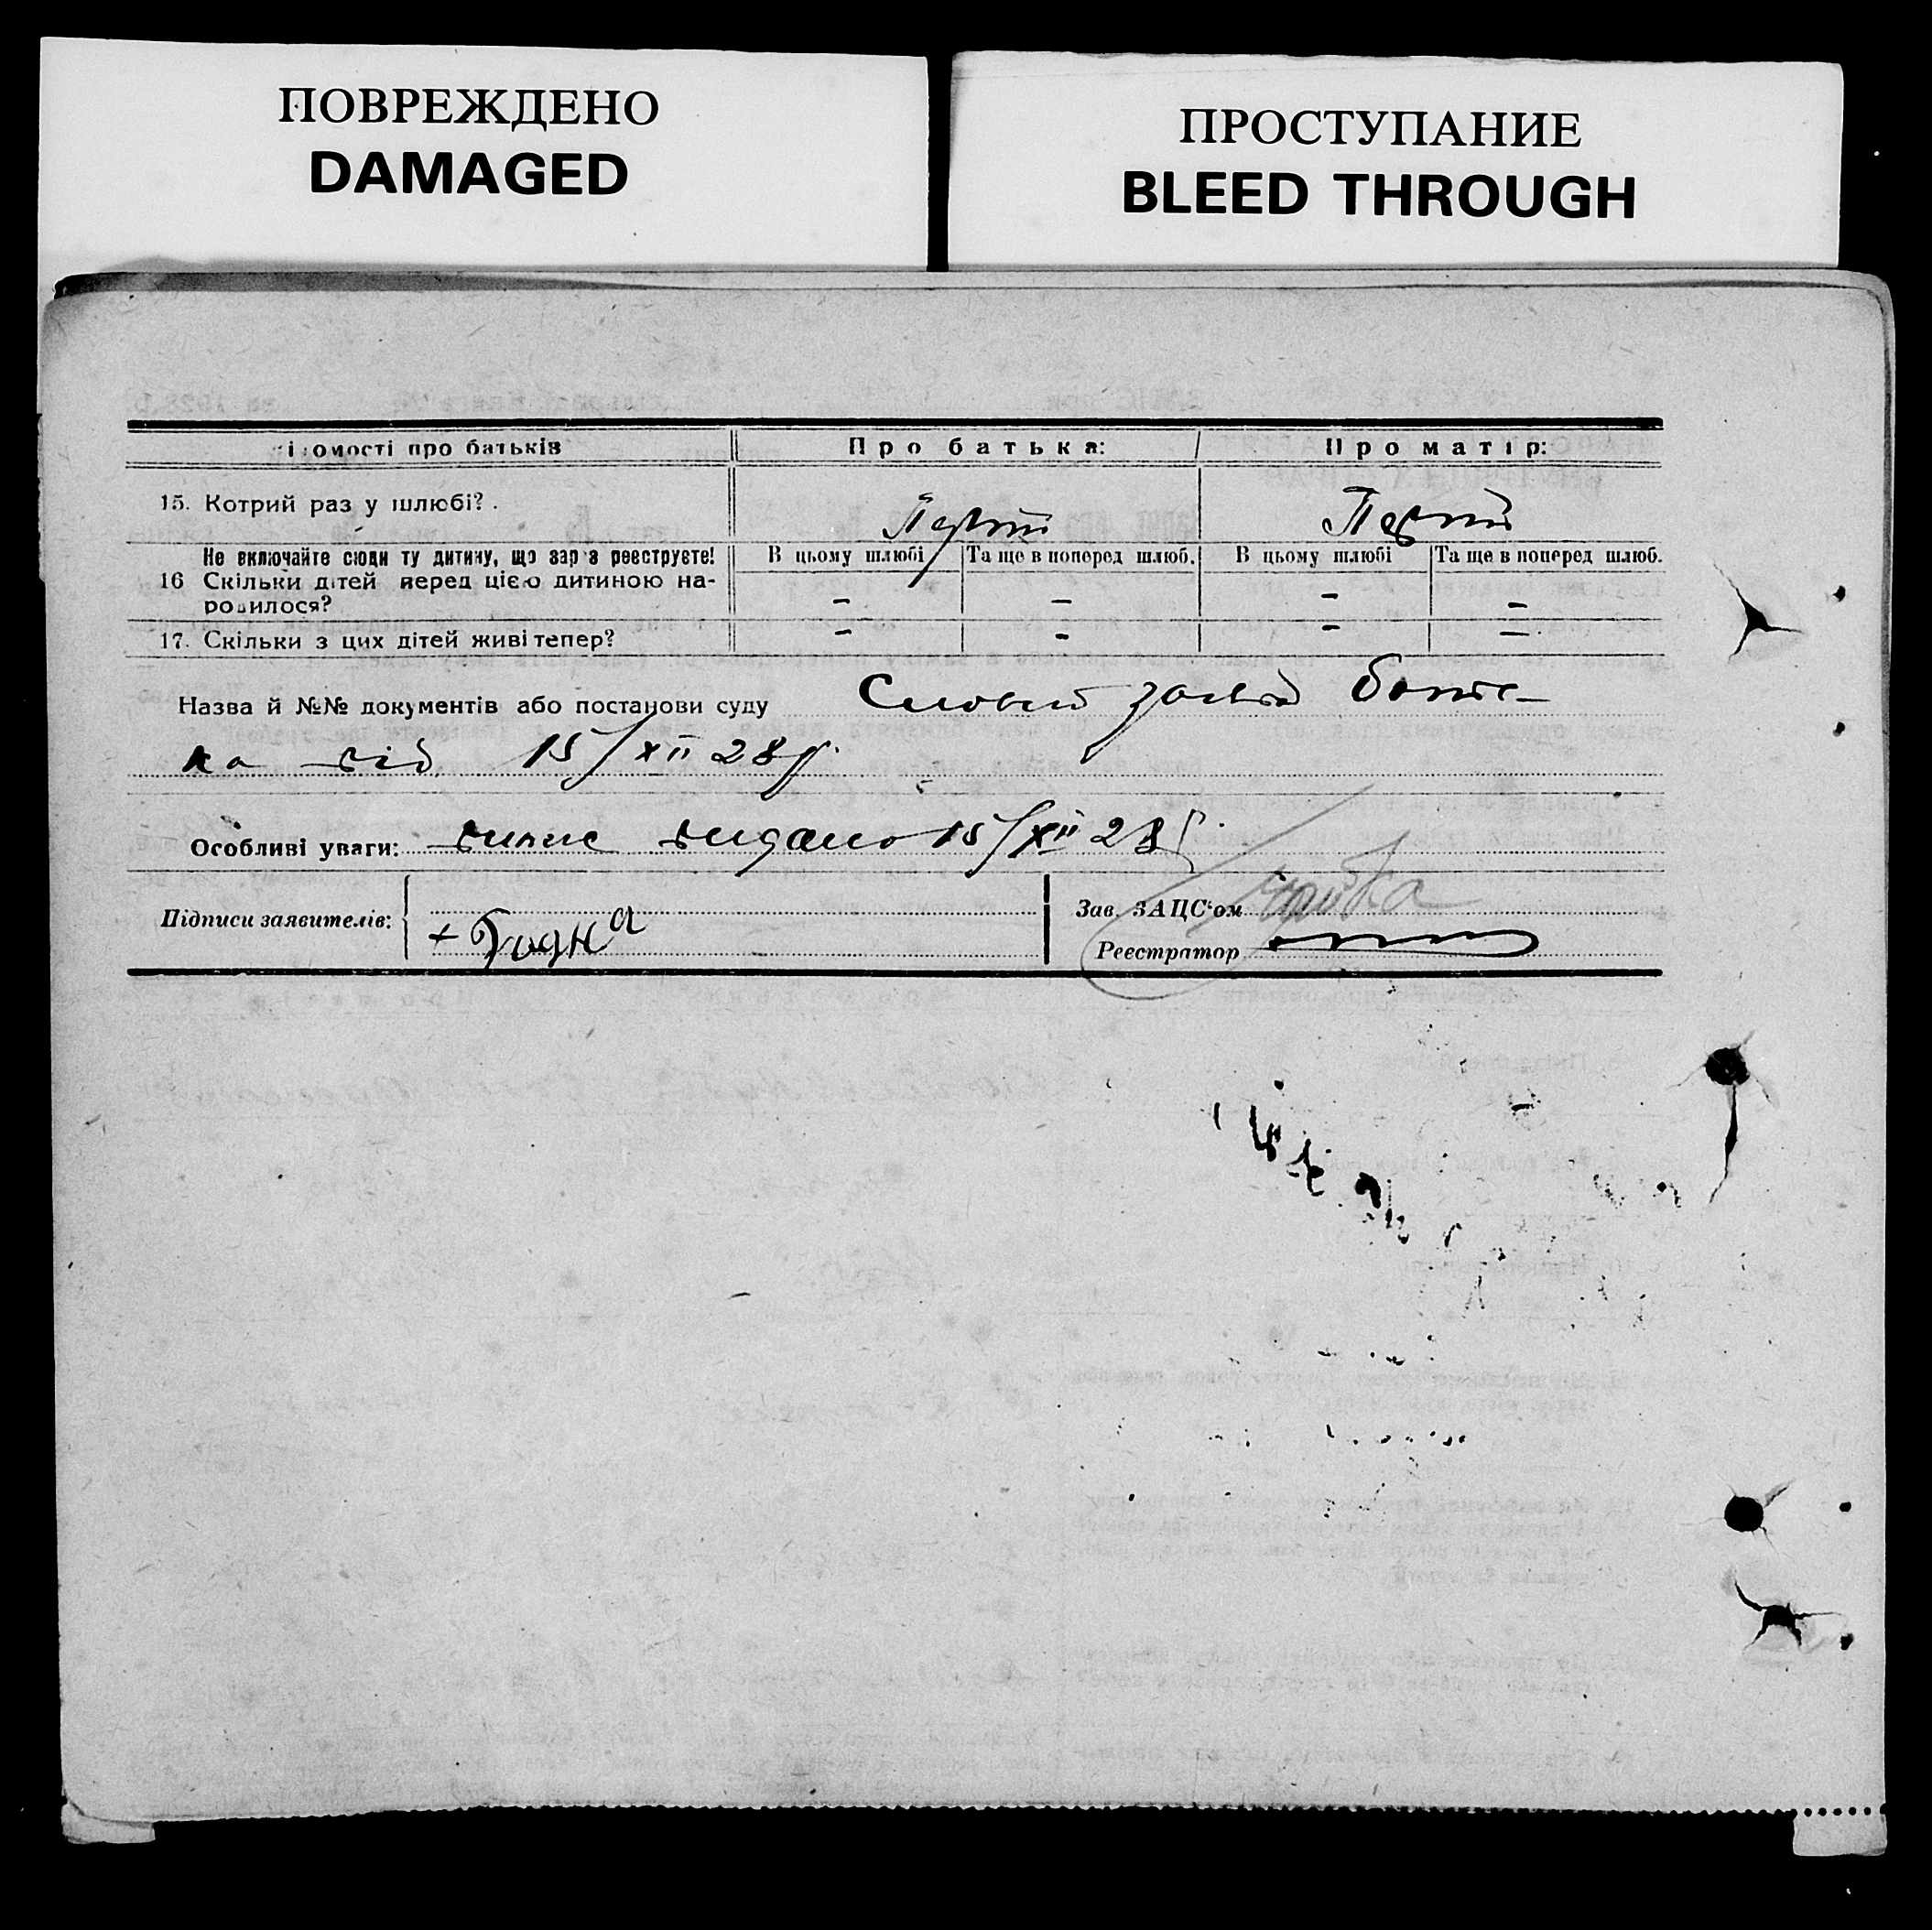 ПОВРЕЖДЕНО
DAMAGED
ПРОСТУПАНИЕ
BLEED THROUGH
ідомості про батьків Про батька: Про матір:
15. Котрий раз у шлюбі? . Перший Перший
Не включайте сюди ту дитину, що зар з реєструєте! В цьому шлюбі Та ще в поперед шлюб. В цьому шлюбі Та ще в поперед шлюб.
16 Скільки дітей перед цією дитиною на-
родилося? – – – –
17. Скільки з цих дітей живі тепер? – – – –
Назва й №№ документів або постанови суду Словесн заява батьь-
ка від 15/XII 28 р.
Особливі уваги: випис видано 15/XII 28 р.
Підписи заявителів: Зав. ЗАЦС'ом
+ Реєстратор